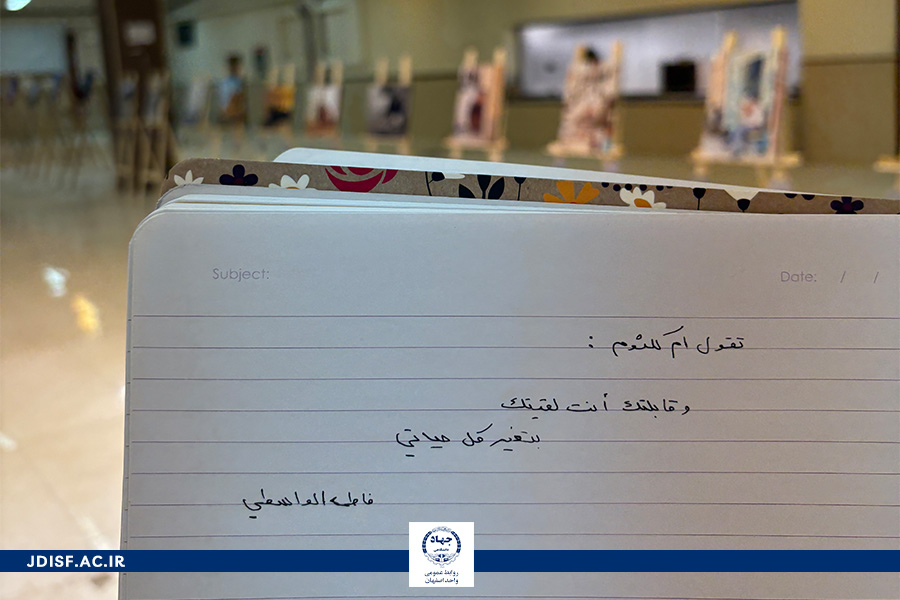 Subject:
Date: / /
تقول ام كلثوم :
وقابلتك أنت لقيتك
بتغير كل حياتي
فاطمة الواسطي
JDISF.AC.IR
جهاد
دانشگاهی
روابط عمومی
واحد اصفهان